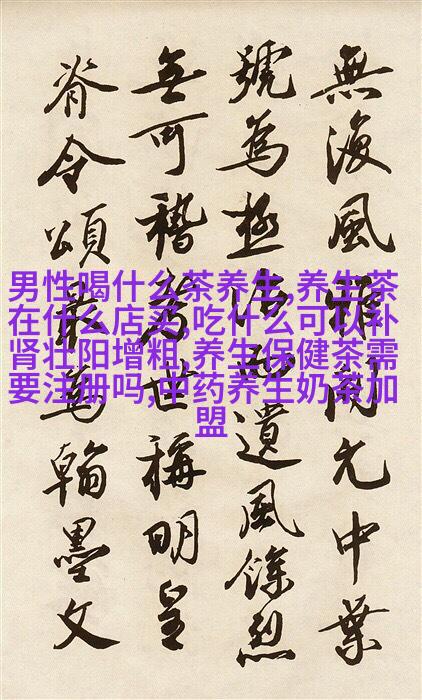 男性喝什么茶养生,养生茶
在什么店买,吃什么可以补
肾壮阳增粗,养生保健茶需
要注册吗,中药养生奶茶加
盟
無復風雅開元中葉
號為極治遺風餘烈
無可稽考世稱明皇
脊令頌最為翰墨文